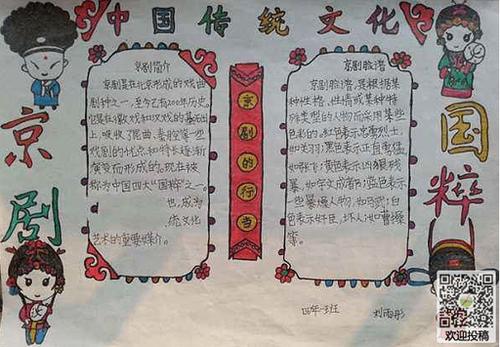 中国传统文化
京剧
国粹
京剧简介
京剧是在北京形成的戏曲
剧种之一,至今已有200年历史。
它是在徽戏和汉戏的基础
上,吸收了昆曲、秦腔等一些
戏剧的优点和特长逐渐
演变而形成的。现在被
称为中国四大“国粹”之一
也,成为
统文化
艺术的重要媒介。
京剧的行当
京剧脸谱
京剧脸谱,是根据某
种性格、性情或某种特
殊类型的人物而采用某些
色彩的。红色表示忠勇烈士,
如关羽;黑色表示正直勇猛,
如张飞;黄色表示凶狠残
暴,如宇文成都;蓝色表示
一些暴燥人物,如马武;白
色表示奸臣、坏人,如曹操
等。
四年一班
刘雨彤
欢迎投稿